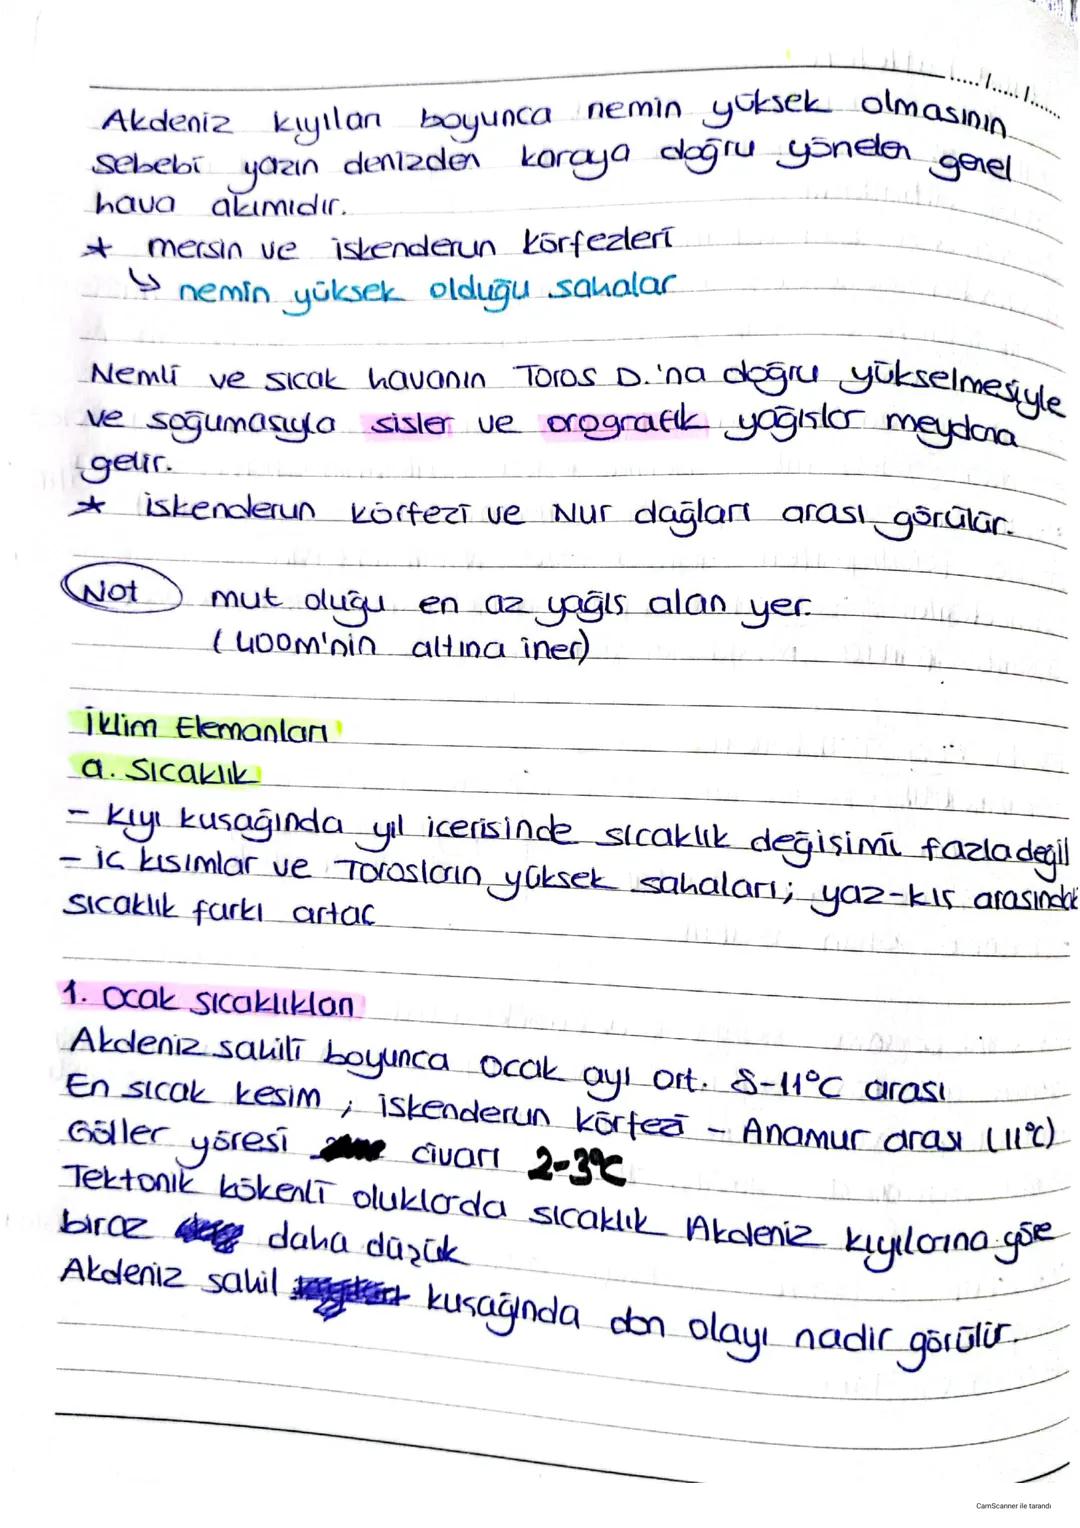 ...../...../......
Akdeniz kıyıları boyunca nemin yüksek olmasının
sebebi yazın denizden karaya doğru yönelen genel
hava akımıdır.
* mersin ve iskenderun körfezleri
↳ nemin yüksek olduğu sahalar
Nemli ve sıcak havanın Toros D.'na doğru yükselmesiyle
ve soğumasıyla sisler ve orografik yağışlar meydana
gelir.
* iskenderun körfezi ve Nur dağları arası görülür.
Not mut oluğu en az yağış alan yer.
(400m'nin altına iner)
İklim Elemanları
a. Sıcaklık
- kıyı kuşağında yıl içerisinde sıcaklık değişimi fazla değil
- iç kısımlar ve Torosların yüksek sahaları; yaz-kış arasındaki
sıcaklık farkı artar
1. Ocak sıcaklıkları
Akdeniz sahili boyunca ocak ayı ort. 8-11°C arası
En sıcak kesim ; iskenderun körfezi - Anamur arası (11°C)
Göller yöresi civarı 2-3°C
Tektonik kökenli oluklarda sıcaklık Akdeniz kıyılarına göre
biraz daha düşük
Akdeniz sahil kuşağında don olayı nadir görülür.
CamScanner ile tarandı